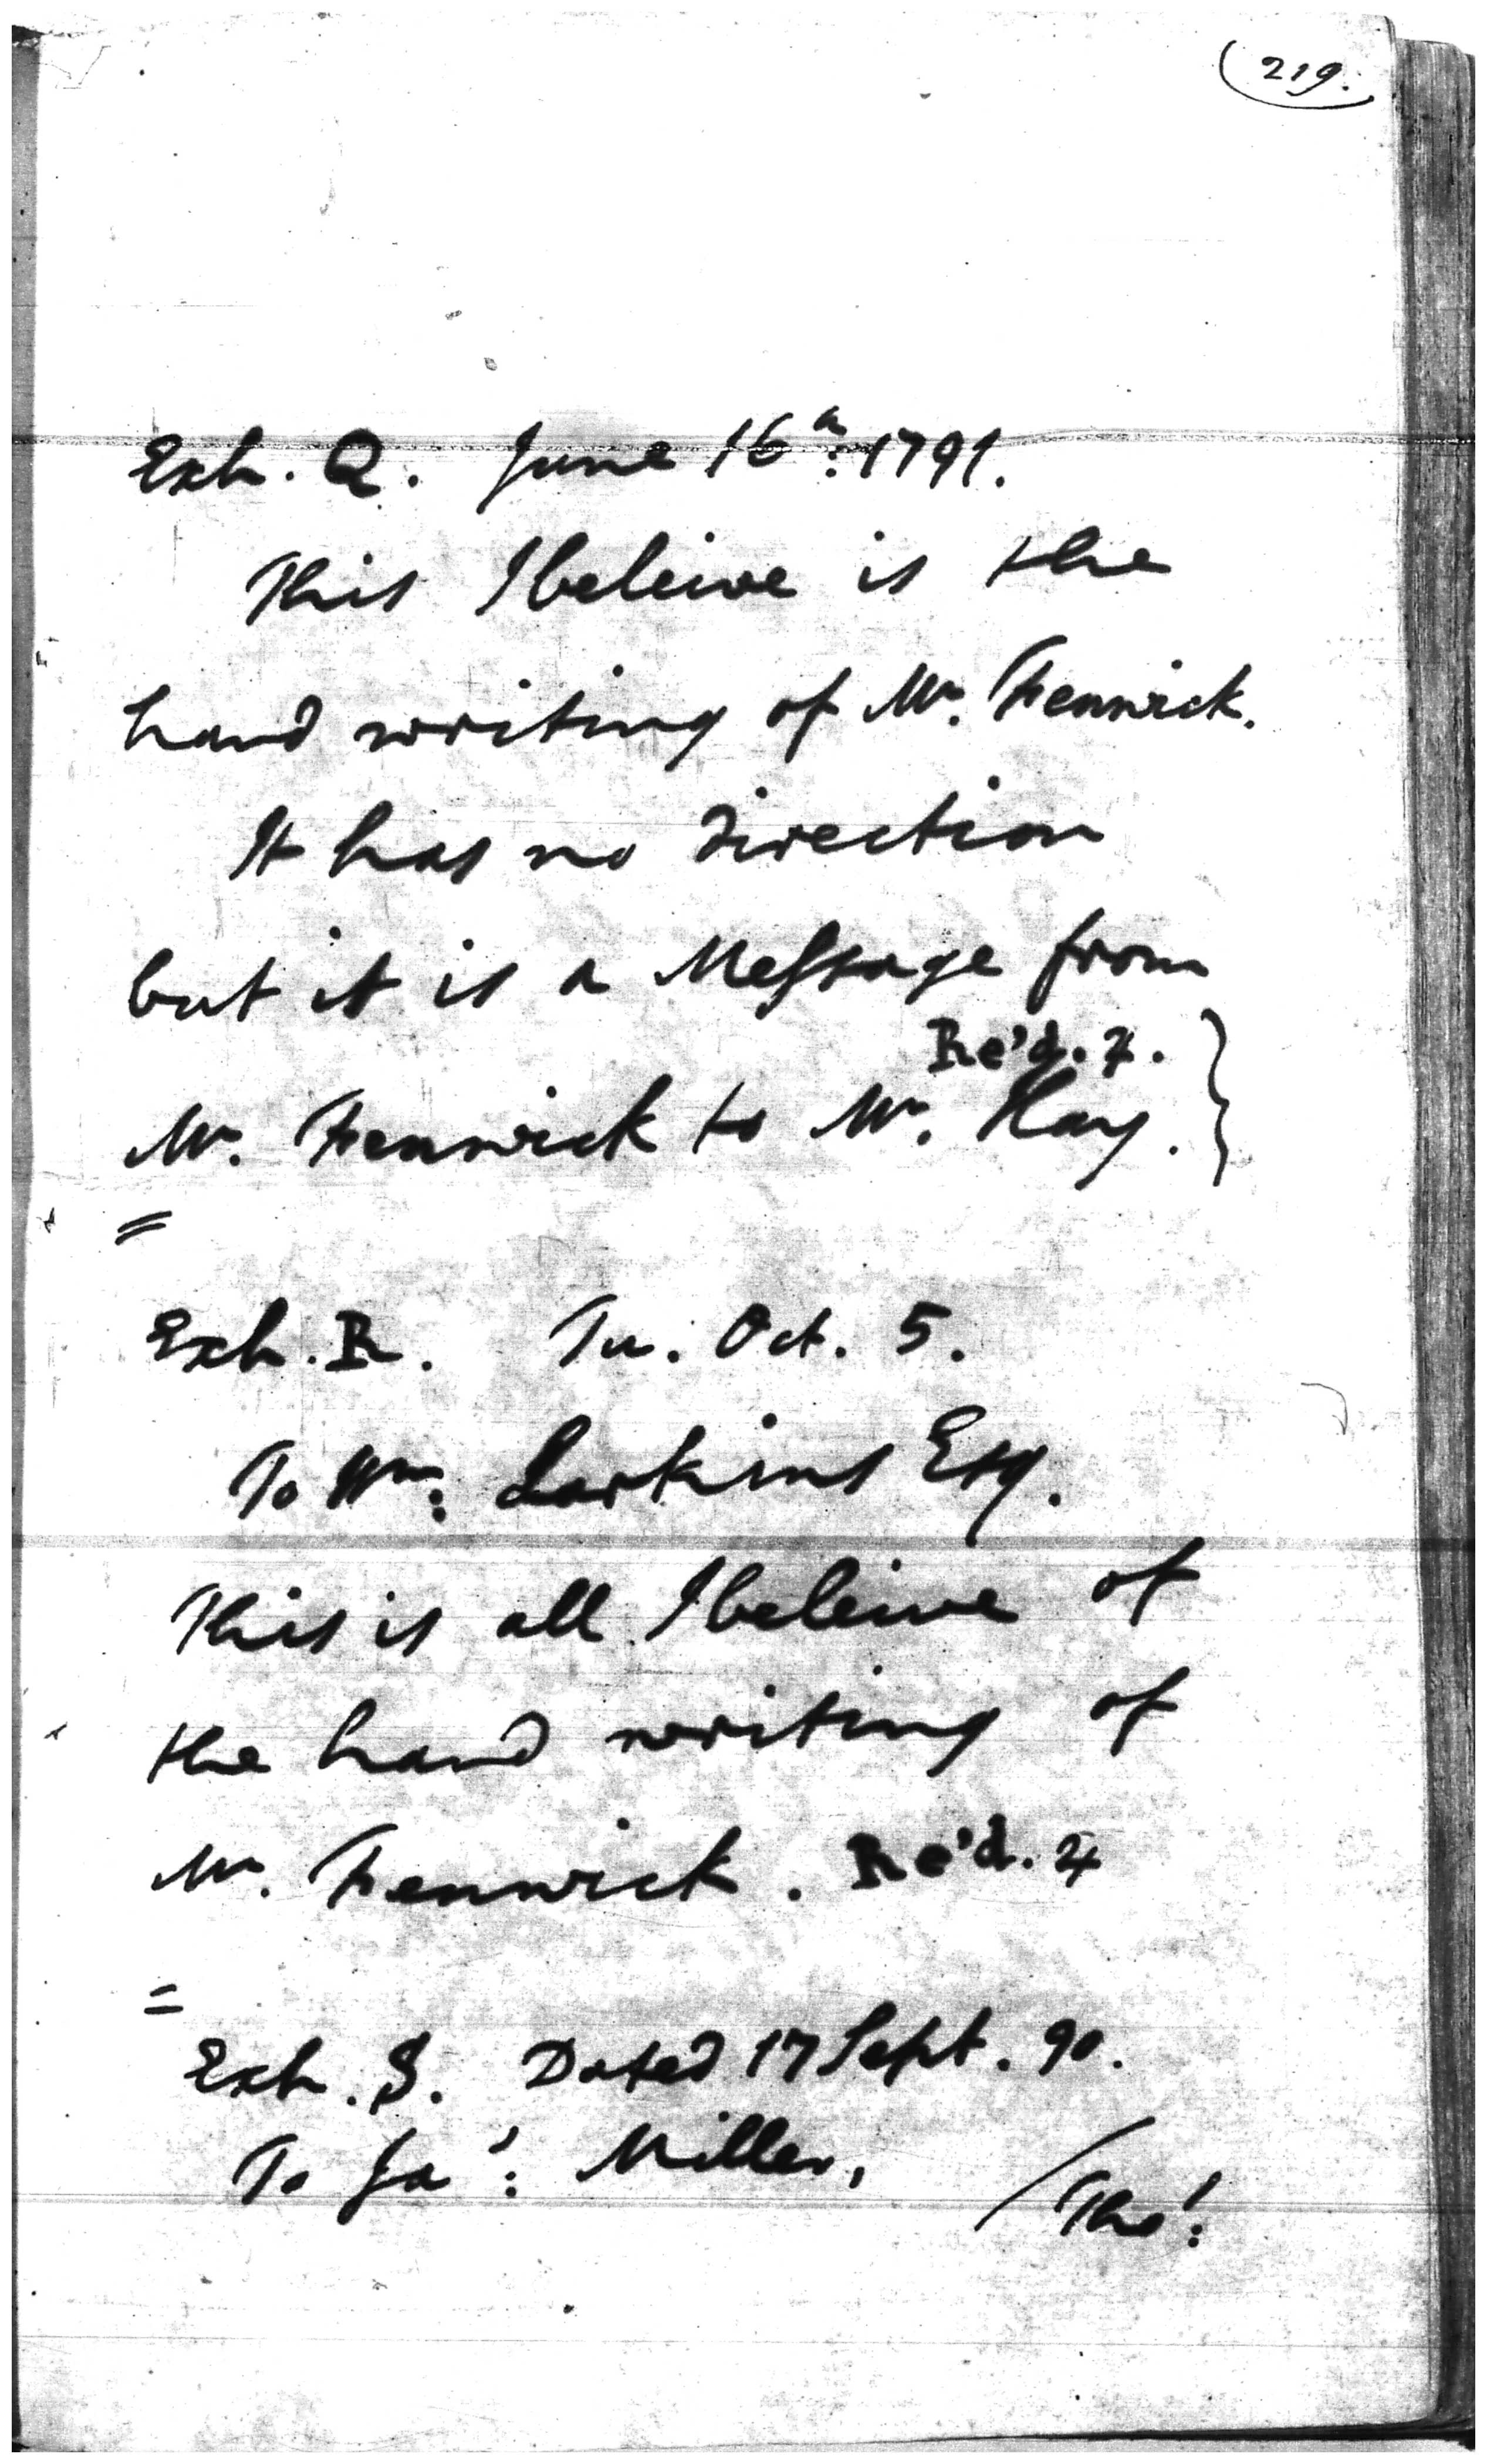 219.
Exh. Q. June 16th: 1791.
This I beleive is the
hand writing of Mr. Fenwick.
It has no direction
but it is a Message from
Re'd. 4.
Mr. Fenwick to Mr. Hay.
=
Exh. R. Tu. Oct. 5.
To Wm: Larkins Esq.
This is all I beleive of
the hand writing of
Mr. Fenwick. Re'd. 4
=
Exh. S. Dated 17 Sept. 90.
To Jas: Miller,
/Tho':